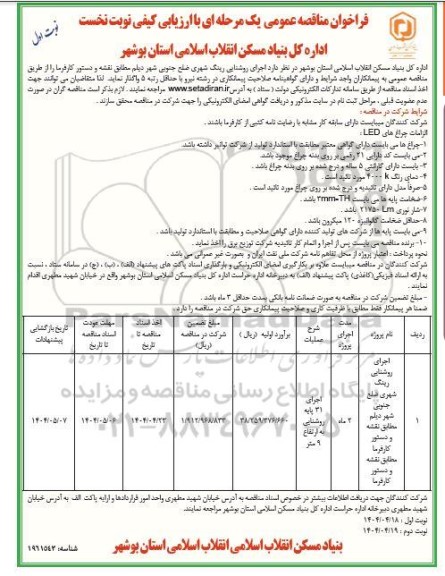 فراخوان مناقصه عمومی یک مرحله ای با ارزیابی کیفی نوبت نخست
نوبت اول
اداره کل بنیاد مسکن انقلاب اسلامی استان بوشهر
اداره کل بنیاد مسکن انقلاب اسلامی استان بوشهر در نظر دارد اجرای روشنایی رینگ شهری ضلع جنوبی شهر دیلم مطابق نقشه و دستور کارفرما را از طریق
مناقصه عمومی به پیمانکاران واجد شرایط و دارای گواهینامه صلاحیت پیمانکاری در رشته نیرو با حداقل رتبه ۵ واگذار نماید. لذا متقاضیان می توانند جهت
اخذ اسناد مناقصه از طریق سامانه تدارکات الکترونیکی دولت ( ستاد ) به آدرس www.setadiran.ir مراجعه نمایند. لازم بذکر است مناقصه گران در صورت
عدم عضویت قبلی ، مراحل ثبت نام در سایت مذکور و دریافت گواهی امضای الکترونیکی را جهت شرکت در مناقصه محقق سازند.
شرایط شرکت در مناقصه :
شرکت کنندگان میبایست دارای سابقه کار مشابه با رضایت نامه کتبی از کارفرما باشند .
الزامات چراغ های LED :
۱-چراغ ها می بایست دارای گواهی معتبر مطابقت با استاندارد تولید از شرکت توانیر داشته باشد.
۲-می بایست کد دارایی ۲۱ رقمی بر روی بدنه چراغ موجود باشد.
۳- بایست دارای گارانتی ۵ ساله و درج شده بر روی بدنه چراغ باشد .
۴- دمای رنگ ۴۰۰۰ k مورد تائید است .
۵-صرفا مدل دارای تائیدیه و درج شده بر روی چراغ مورد تائید است .
۶-ضخامت پایه ها می بایست ۳mm=TH باشد.
۷-شار نوری ۲۱۷۵۰ Lm باشد .
۸-حداقل ضخامت گالوانیزه ۱۲۰ میکرون باشد .
۹-می بایست پایه ها از شرکت های تولید کننده دارای گواهی صلاحیت و مطابقت با استاندارد تولید باشد .
۱۰- برنده مناقصه می بایست پس از اجرا و اتمام کار تائیدیه شرکت توزیع برق را اخذ نماید .
نحوه پرداخت : اعتبار پروژه از محل تفاهم نامه شرکت ملی نفت ایران و بصورت غیر عمرانی می باشد .
شرکت کنندگان در مناقصه میبایست علاوه بر بکارگیری امضای الکترونیکی و بارگذاری اسناد پاکت های پیشنهاد (الف) ، (ب) ، (ج) در سامانه ستاد ، نسبت
به ارائه اسناد فیزیکی (کاغذی) پاکت پیشنهاد (الف) به دبیرخانه اداره حراست اداره کل بنیاد مسکن اسلامی استان بوشهر واقع در خیابان شهید مطهری اقدام
نمایند .
- مبلغ تضمین شرکت در مناقصه به صورت ضمانت نامه بانکی بمدت حداقل ۳ ماه باشد .
ضمنا هر پیمانکار فقط مطابق با ظرفیت کاری و صلاحیت پیمانکاری حق شرکت در مناقصه را دارد .
ردیف | نام پروژه | مدت اجرای پروژه | شرح عملیات | برآورد اولیه (ریال) | مبلغ تضمین شرکت در مناقصه (ریال) | اخذ اسناد مناقصه تا تاریخ | مهلت عودت اسناد مناقصه تا تاریخ | تاریخ بازگشایی پیشنهادات
۱ | اجرای روشنایی رینگ شهری ضلع جنوبی شهر دیلم مطابق نقشه و دستور کارفرما و دستور مطابق نقشه و دستور کارفرما | ۲ ماه | اجرای ۳۱ پایه روشنایی به ارتفاع ۹ متر | ۳۸/۲۵۹/۳۷۶/۶۶۰ | ۱/۹۱۲/۹۶۸/۸۳۳ | ۱۴۰۴/۰۴/۲۳ | ۱۴۰۴/۰۵/۰۶ | ۱۴۰۴/۰۵/۰۷
شرکت کنندگان جهت دریافت اطلاعات بیشتر در خصوص اسناد مناقصه به آدرس خیابان شهید مطهری واحد امور قراردادها و ارایه پاکت الف به آدرس خیابان
شهید مطهری دبیرخانه اداره حراست اداره کل بنیاد مسکن اسلامی استان بوشهر مراجعه نمایند.
نوبت اول : ۱۴۰۴/۰۴/۱۸
نوبت دوم : ۱۴۰۴/۰۴/۱۹
بنیاد مسکن انقلاب اسلامی انقلاب اسلامی استان بوشهر
شناسه: ۱۹۶۱۵۴۳